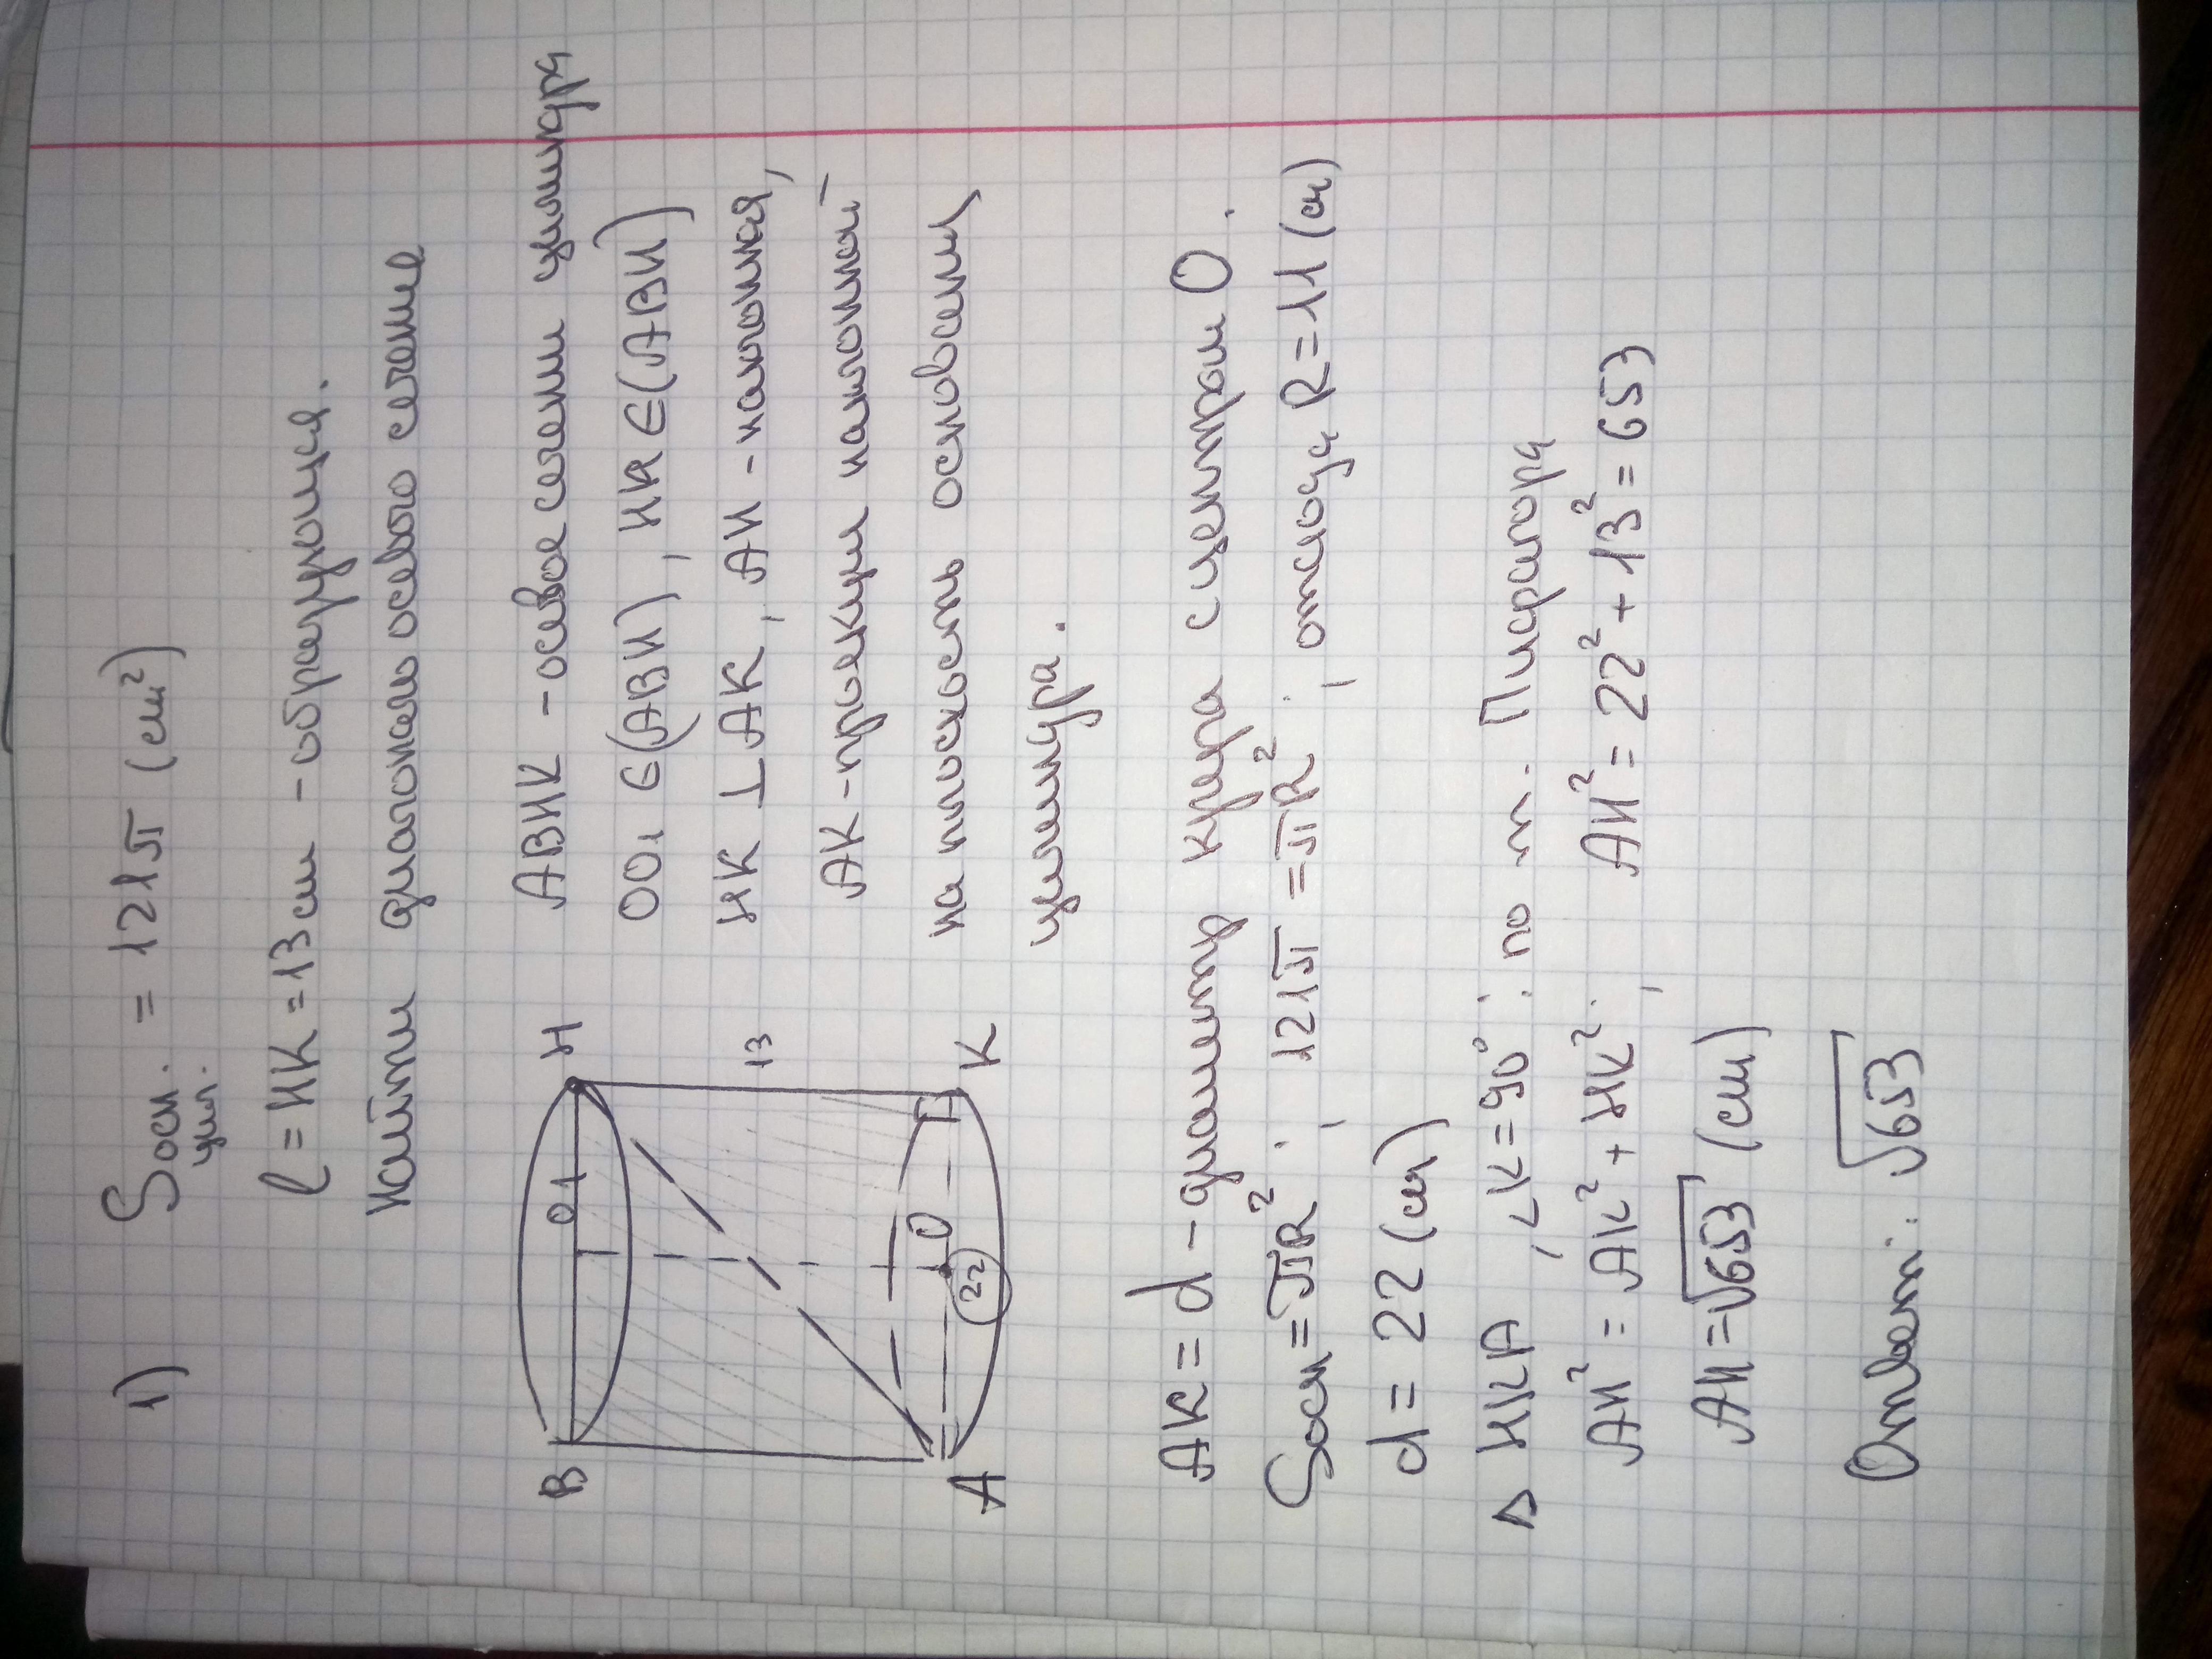 1) Sосн. цил. = 121π (см²)
l = HK = 13 см - образующая.
Найти диагональ осевого сечения
B
H
O1
13
O
22
A
K
ABHK - осевое сечени цилиндра
OO₁ ∈ (ABH), HK ∈ (ABH)
HK ⊥ AK, AH - наклонная,
AK - проекции наклонной
на плоскость основания
цилиндра.
AK = d - диаметр круга с центром O.
Sосн = πR²; 121π = πR²; отсюда R = 11 (см)
d = 22 (см)
Δ HKA, ∠K = 90°: по т. Пифагора
AH² = AK² + HK²; AH² = 22² + 13² = 653
AH = √653 (см)
Ответ: √653